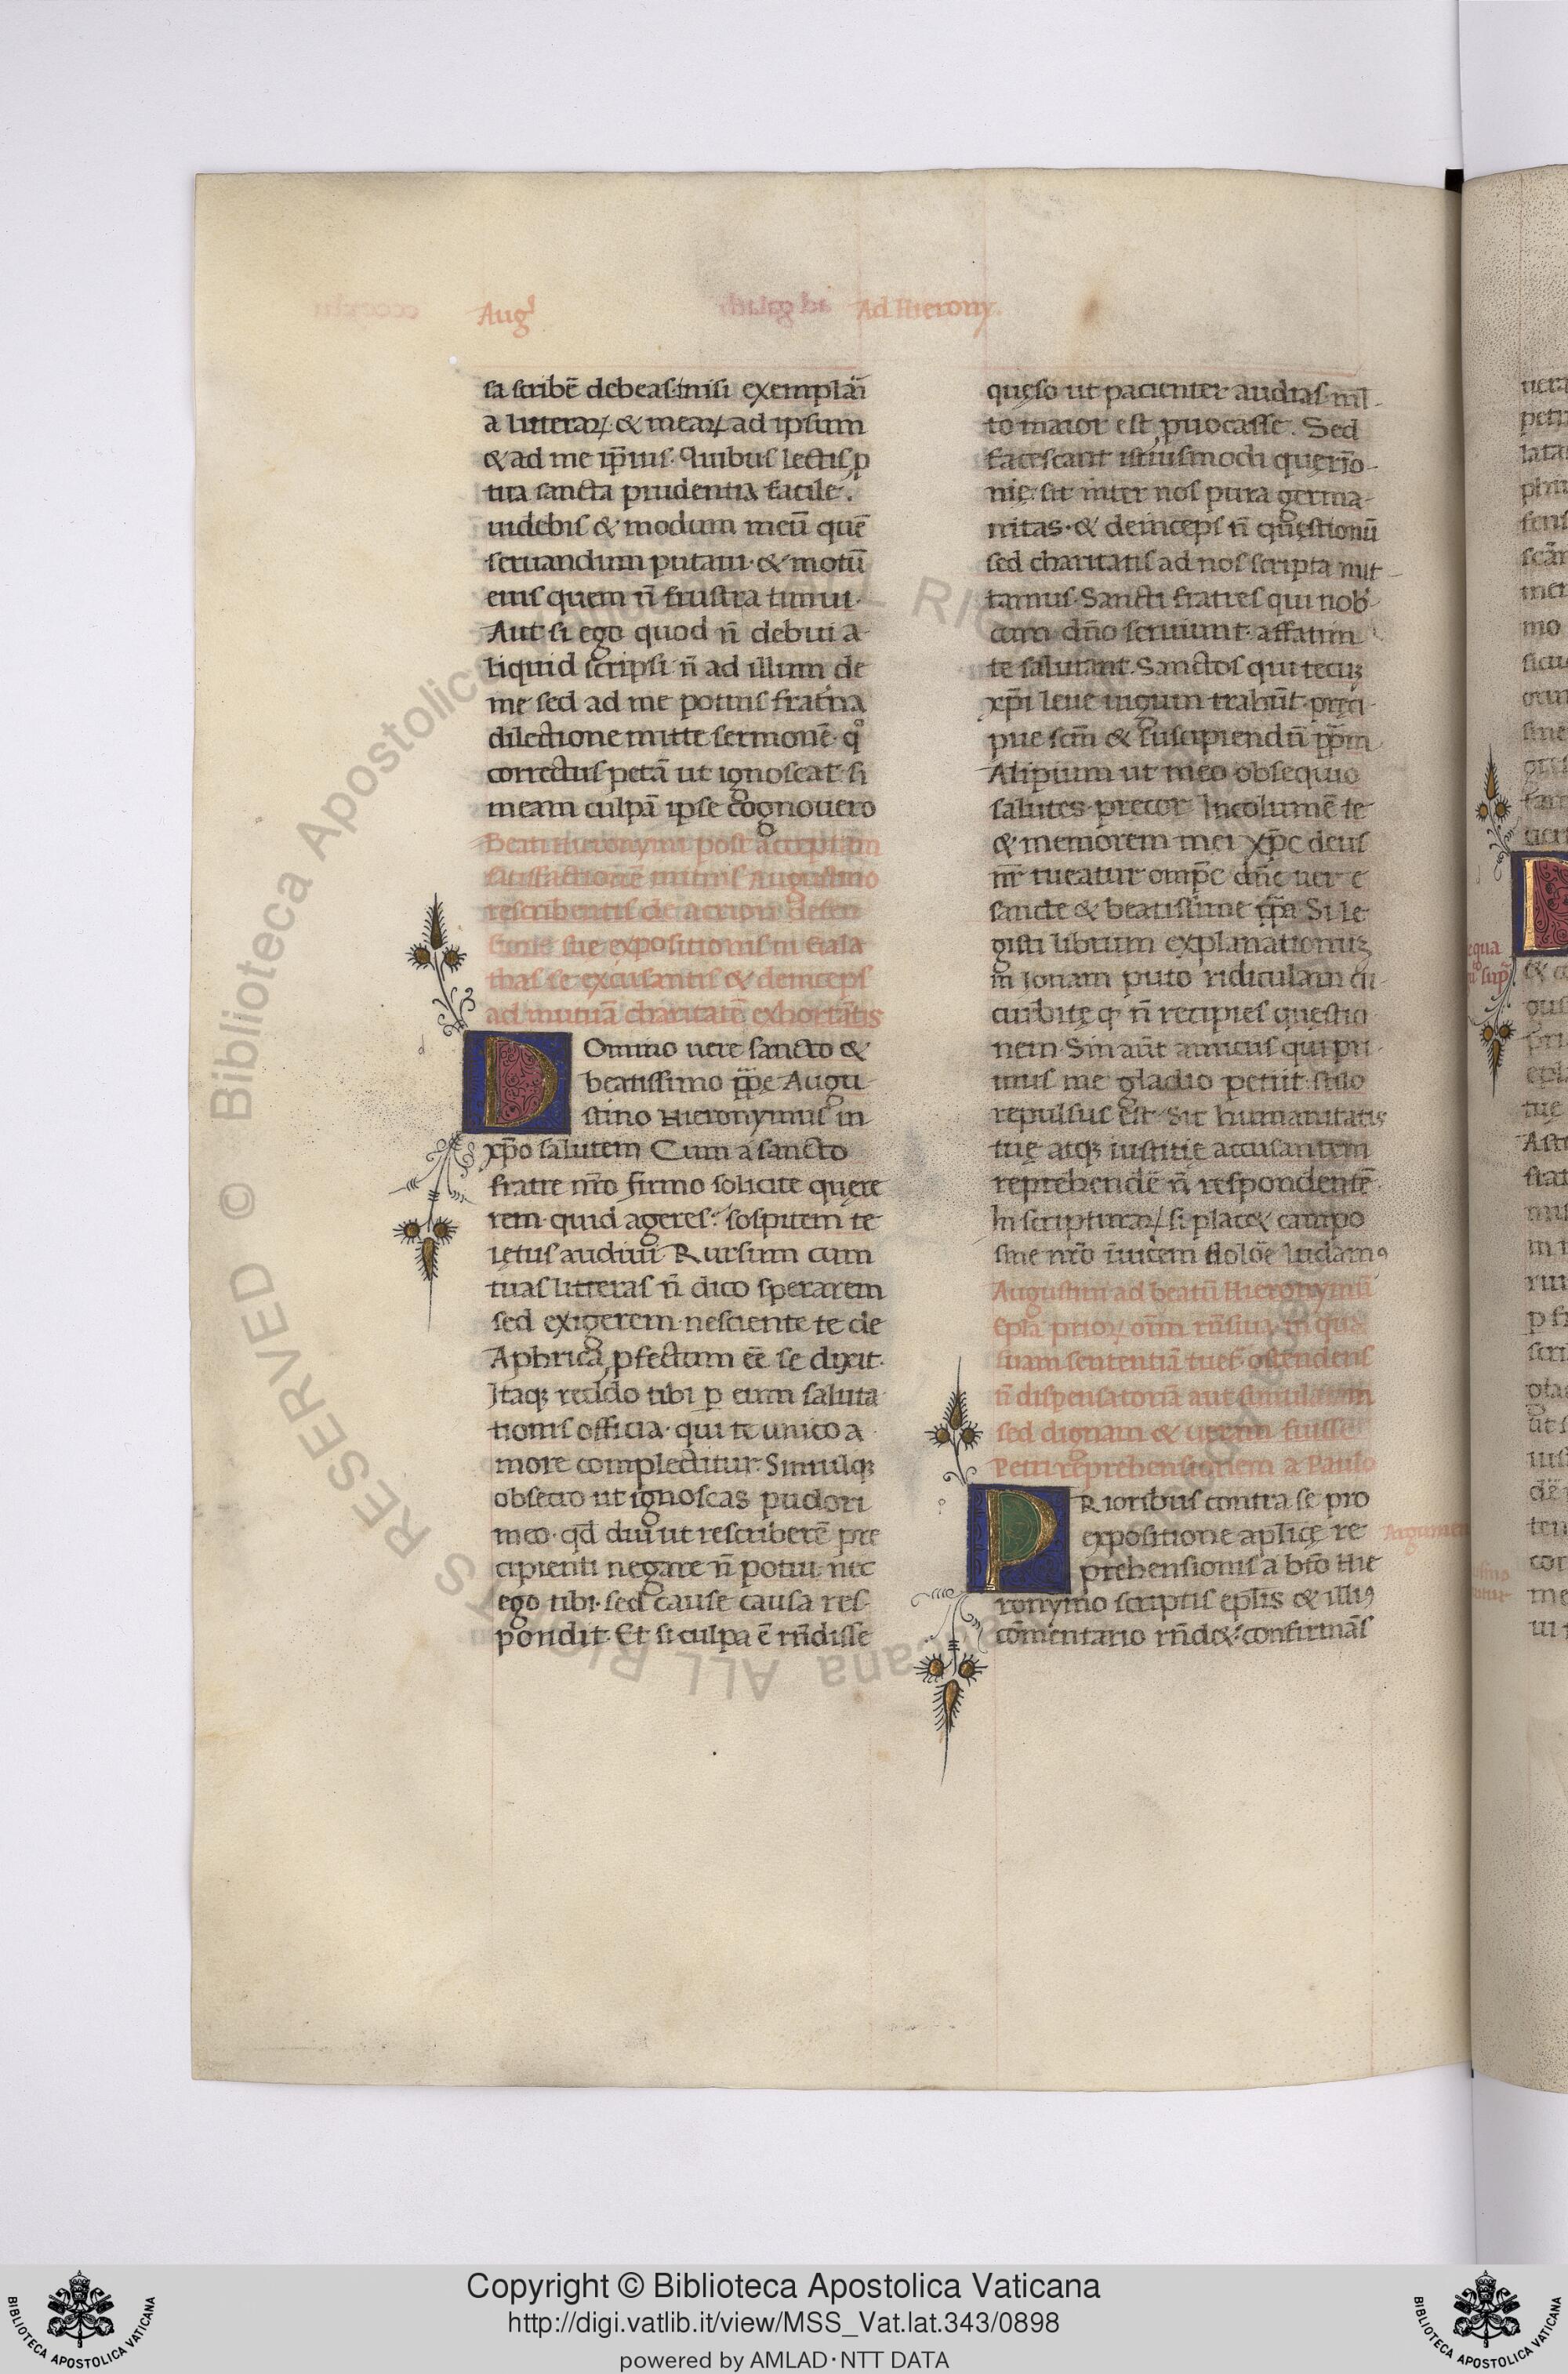 Aug'
Ad Hierony.
sa scribē debeas. nisi exemplari
a litterarꝝ & mearꝝ ad ipsum
& ad me ip̄ius. Quibus lectis ꝓ
tua sancta prudentia facile.
uidebis & modum meū quē
seruandum putaui. & motū
eius quem n̄ frustra timui.
Aut si ego quod n̄ debui a
liquid scripsi n̄ ad illum de
me sed ad me potius frat̄na
dilectione mitte sermonē. qͦ
correctus petā ut ignoscat si
meam culpā ipse cognouero
Beati Hieronymi post acceptam
satisfactionē Augustino
rescribentis de
sue expositionis in Gala
thas se excusantis & deinceps
ad mutuā charitatē exhortātis
DOmino uere sancto &
beatissimo pp̄e Augu
stino Hieronymus in
xp̄o salutem Cum a sancto
fratre nr̄o firmo solicite quere
rem. quid ageres. sospitem te
letus audiui Rursum cum
tuas litteras n̄ dico sperarem
sed exigerem. nesciente te de
Aphrica ꝓfectum eē se dixit.
Itaqꝫ reddo tibi ꝑ eum saluta
tionis officia. qui te unico a
more complectitur. Simulqꝫ
obsecro ut ignoscas pudori
meo. qd̄ diu ut rescriberē pre
cipienti negare n̄ potui. nec
ego tibi. sed cause causa res
pondit. Et si culpa ē rn̄disse
quęso ut pacienter audias. ml
to maior est ꝓuocasse. Sed
facescant istiusmodi querīo
nię. sit inter nos pura germa
nitas. & deinceps n̄ quęstionū
sed charitatis ad nos scripta mit
tamus. Sancti fratres qui nob
cum dn̄o seruiunt. affatim
te salutant. Sanctos qui tecuꝫ
xp̄i leue iugum trahūt. pręci
pue scm̄ & suscipiendū pp̄m
Alipium ut meo obsequio
salutes. precor Incolumē te
& memorem mei xp̄c deus
nr̄ tueatur omp̄c dn̄e uere
sancte & beatissime pp̄a Si le
gisti librum explanationuꝫ
in Ionam puto ridiculam cu
curbitę qͦ n̄ recipies questio
nem. Sin aūt amicus qui pri
mus me gladio petiit. stilo
repulsus est. Sit humanitatis
tuę atqꝫ iustitię accusantem
reprehendē n̄ respondentē.
In scripturarꝝ si plac& campo
sine nr̄o īuicem doloēe ludamꝰ
Augustini ad beatū Hieronymū
epl̄a priorꝝ
suam sententiā tueṫ. ostendens
n̄ dispensatoriā aut
sed dignam & ueram fuisse
Petri reprehensionem a Paulo
PRioribus contra se pro
expositione aplicę re
prehensionis a bt̄o Hie
ronymo scriptis epl̄is & illiꝰ
cōmentario rn̄d&. confirmās
Argumen
Copyright © Biblioteca Apostolica Vaticana
http://digi.vatlib.it/view/MSS_Vat.lat.343/0898
powered by AMLAD·NTT DATA
BIBLIOTECA APOSTOLICA VATICANA
BIBLIOTECA APOSTOLICA VATICANA